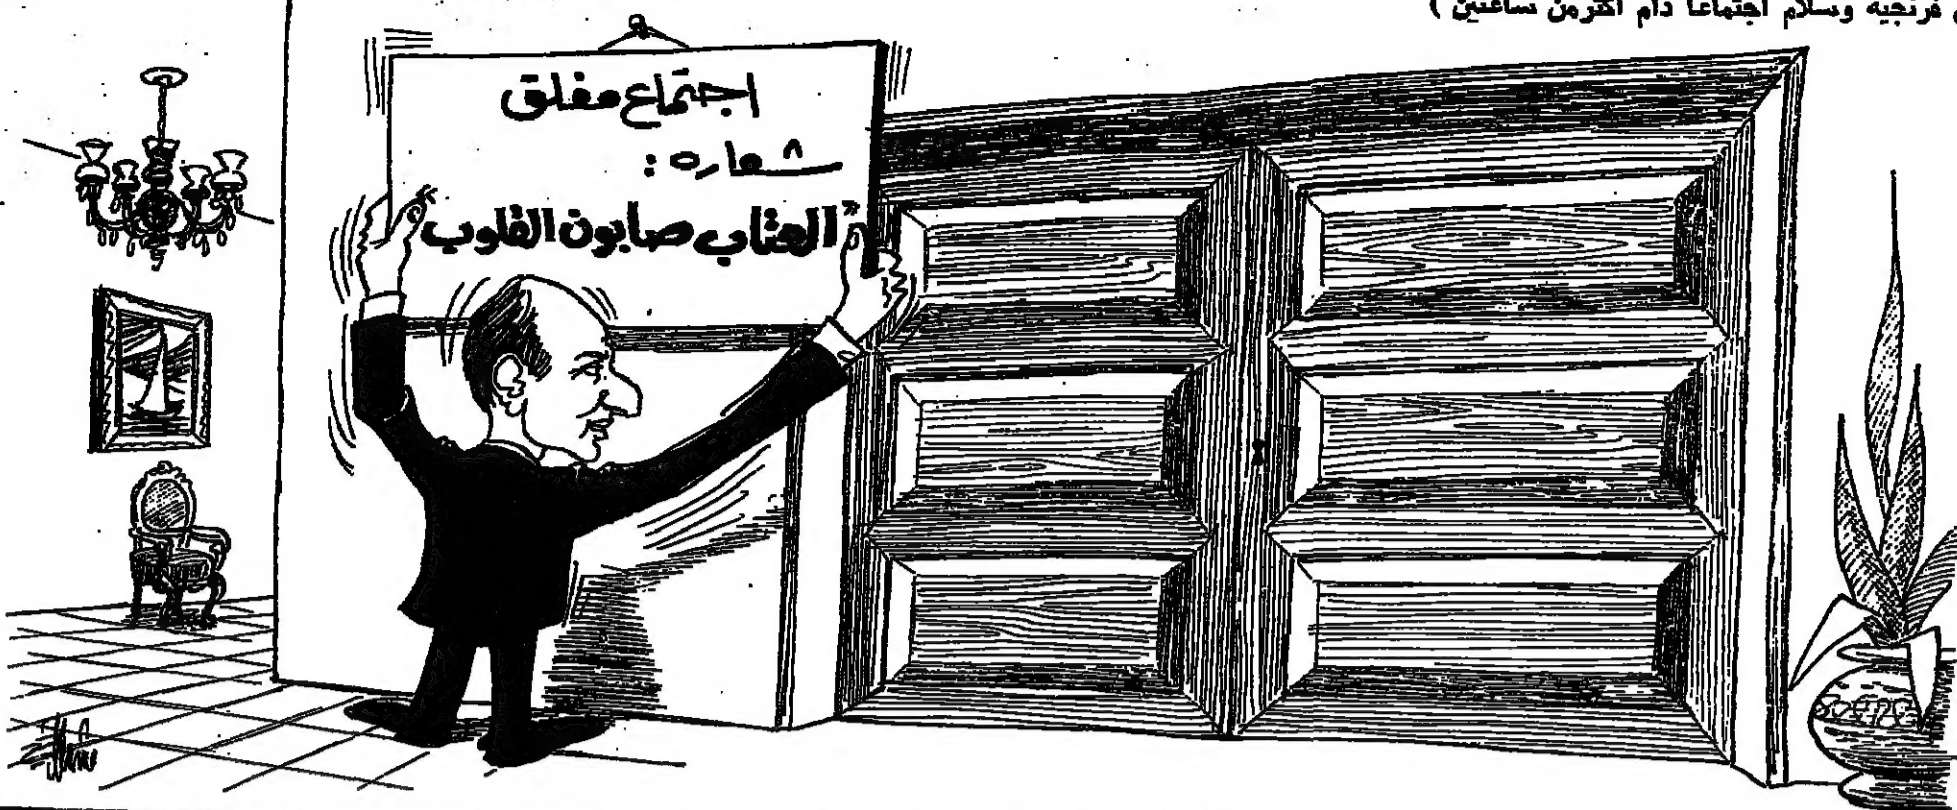 فرنجيه وسلام اجتماعا دام اكثر من ساعتين )
اجتماع مغلق
شعاره :
"العتاب صابون القلوب"